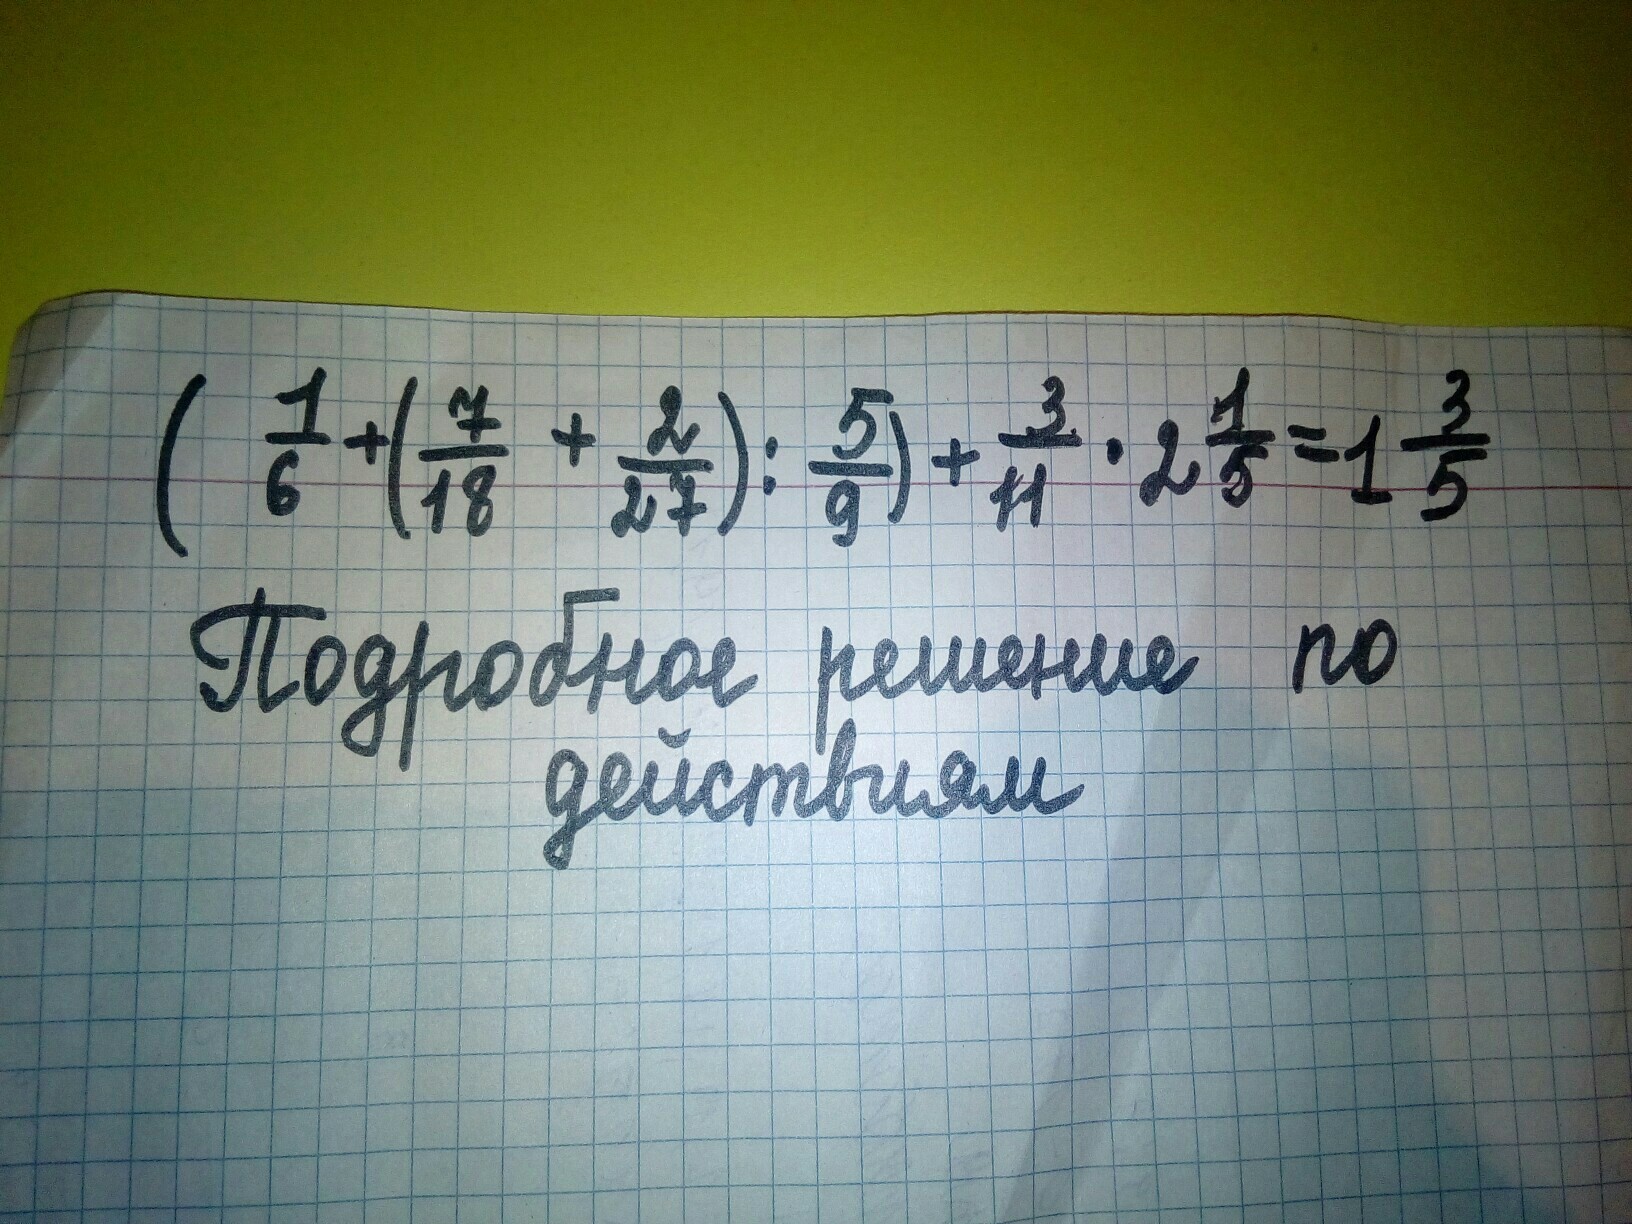 (1/6+(7/18+2/27):5/9)+3/11·2 1/5=1 3/5
Подробное решение по
действиям